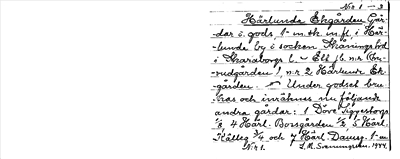 Nr 1 - 2
Härlunda Ekgården Går-
dar o. gods, 1 m. fl., i Här-
lunda by i socken Skånings hd
i Skaraborgs l. – Ett jb. nr 1
rudgården 1, nr. 2 Härlunda Ek-
gården. – Under godset bru-
kas och inräknas nu följande
andra gårdar: 1 Döve
1/8, 4 Härl. Borsgården 1/2, 5 Härl.
Källeg 3/4 och 7 Härl. Daneg. 1 m
Nr 1. S. M. Svenungsson. 1944.